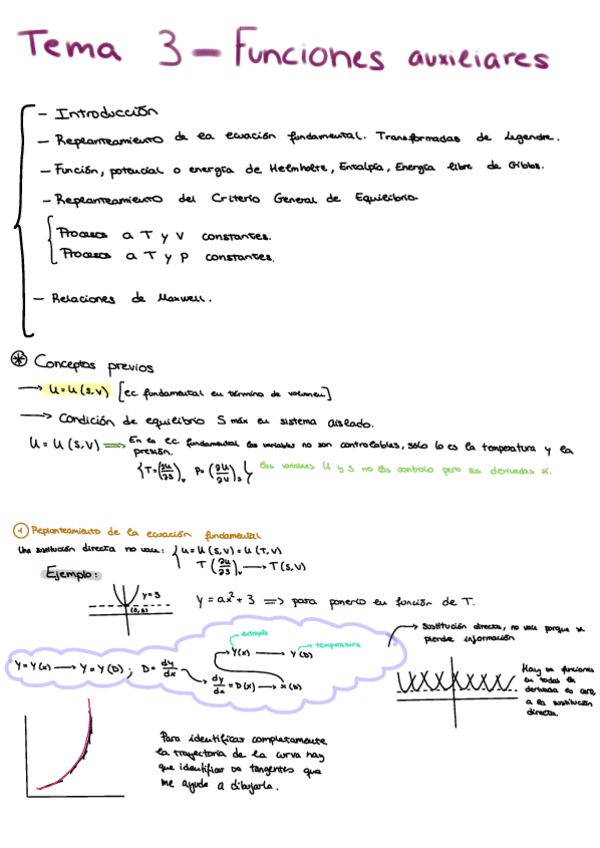 Tema 3 - Funciones auxiliares
- Introducción
- Replanteamiento de la ecuación fundamental. Transformadas de Legendre.
- Función, potencial o energía de Helmholtz, Entalpía, Energía libre de Gibbs.
- Replanteamiento del Criterio General de Equilibrio
Procesos a T y V constantes.
Procesos a T y P constantes.
- Relaciones de Maxwell.
* Conceptos previos
→ U=U(S,V) [ec fundamental en término de volumen]
→ Condición de equilibrio S máx en sistema aislado.
U = U(S,V) ⇒ En la ec. fundamental las variables no son controlables, sólo lo es la temperatura y la
presión.
{T=(∂U/∂S)v P=(∂U/∂V)s} las variables U y S no las controlo pero sus derivadas sí.
1 Replanteamiento de la ecuación fundamental
Una sustitución directa no vale: { U=U(S,V)=U(T,V)
T(∂U/∂S)v → T(S,V)
Ejemplo:
y=3
y=ax²+3 ⇒ para ponerlo en función de T.
Sustitución directa, no vale porque se
pierde información
entropía
Y(x) → Y(D)
temperatura
Y=Y(x) → Y=Y(D); D=dy/dx
dy/dx=D(x) → x(D)
Hay funciones
en todas
derivada es
a la sustitución
directa.
Para identificar completamente
la trayectoria de la curva hay
que identificar las tangentes que
me ayude a dibujarla.